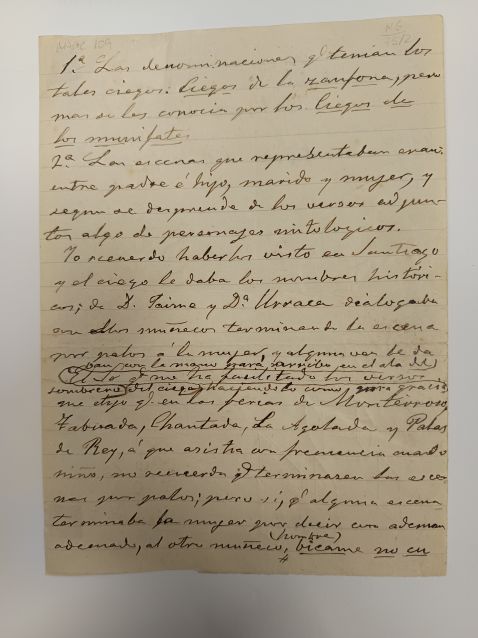 MAPC 109
1.ª Las denominaciones q.e tenian los
tales ciegos: ciegos de la zanfona, pero
mas se les conocia por los ciegos de
los munifates
2.ª Las escenas que representaban eran
entre padre é hijo, marido y mujer, y
segun se desprende de los versos adjun-
tos algo de personajes mitologicos.
Yo recuerdo haberlos visto en Santiago
y el ciego le daba los nombres históri-
cos; de D. Jaime y D.ª Urraca dialogaba
con los muñecos terminando la escena
por palos á la mujer, y alguna vez le da
ban con la mano para arriba en el ala del
El Sr q.e me ha facilitado los versos
sombrero del ciego haciendo como gracia
me dijo q.e en las ferias de Monterroso,
Taboada, Chantada, La Agolada y Palas
de Rey, á que asistia con frecuencia cuando
niño, no recuerda q.e terminasen las esce-
nas por palos; pero sí, q.e alguna escena
terminaba la mujer por decir con ademan
(hombre)
adecuado, al otro muñeco, bicame no cu